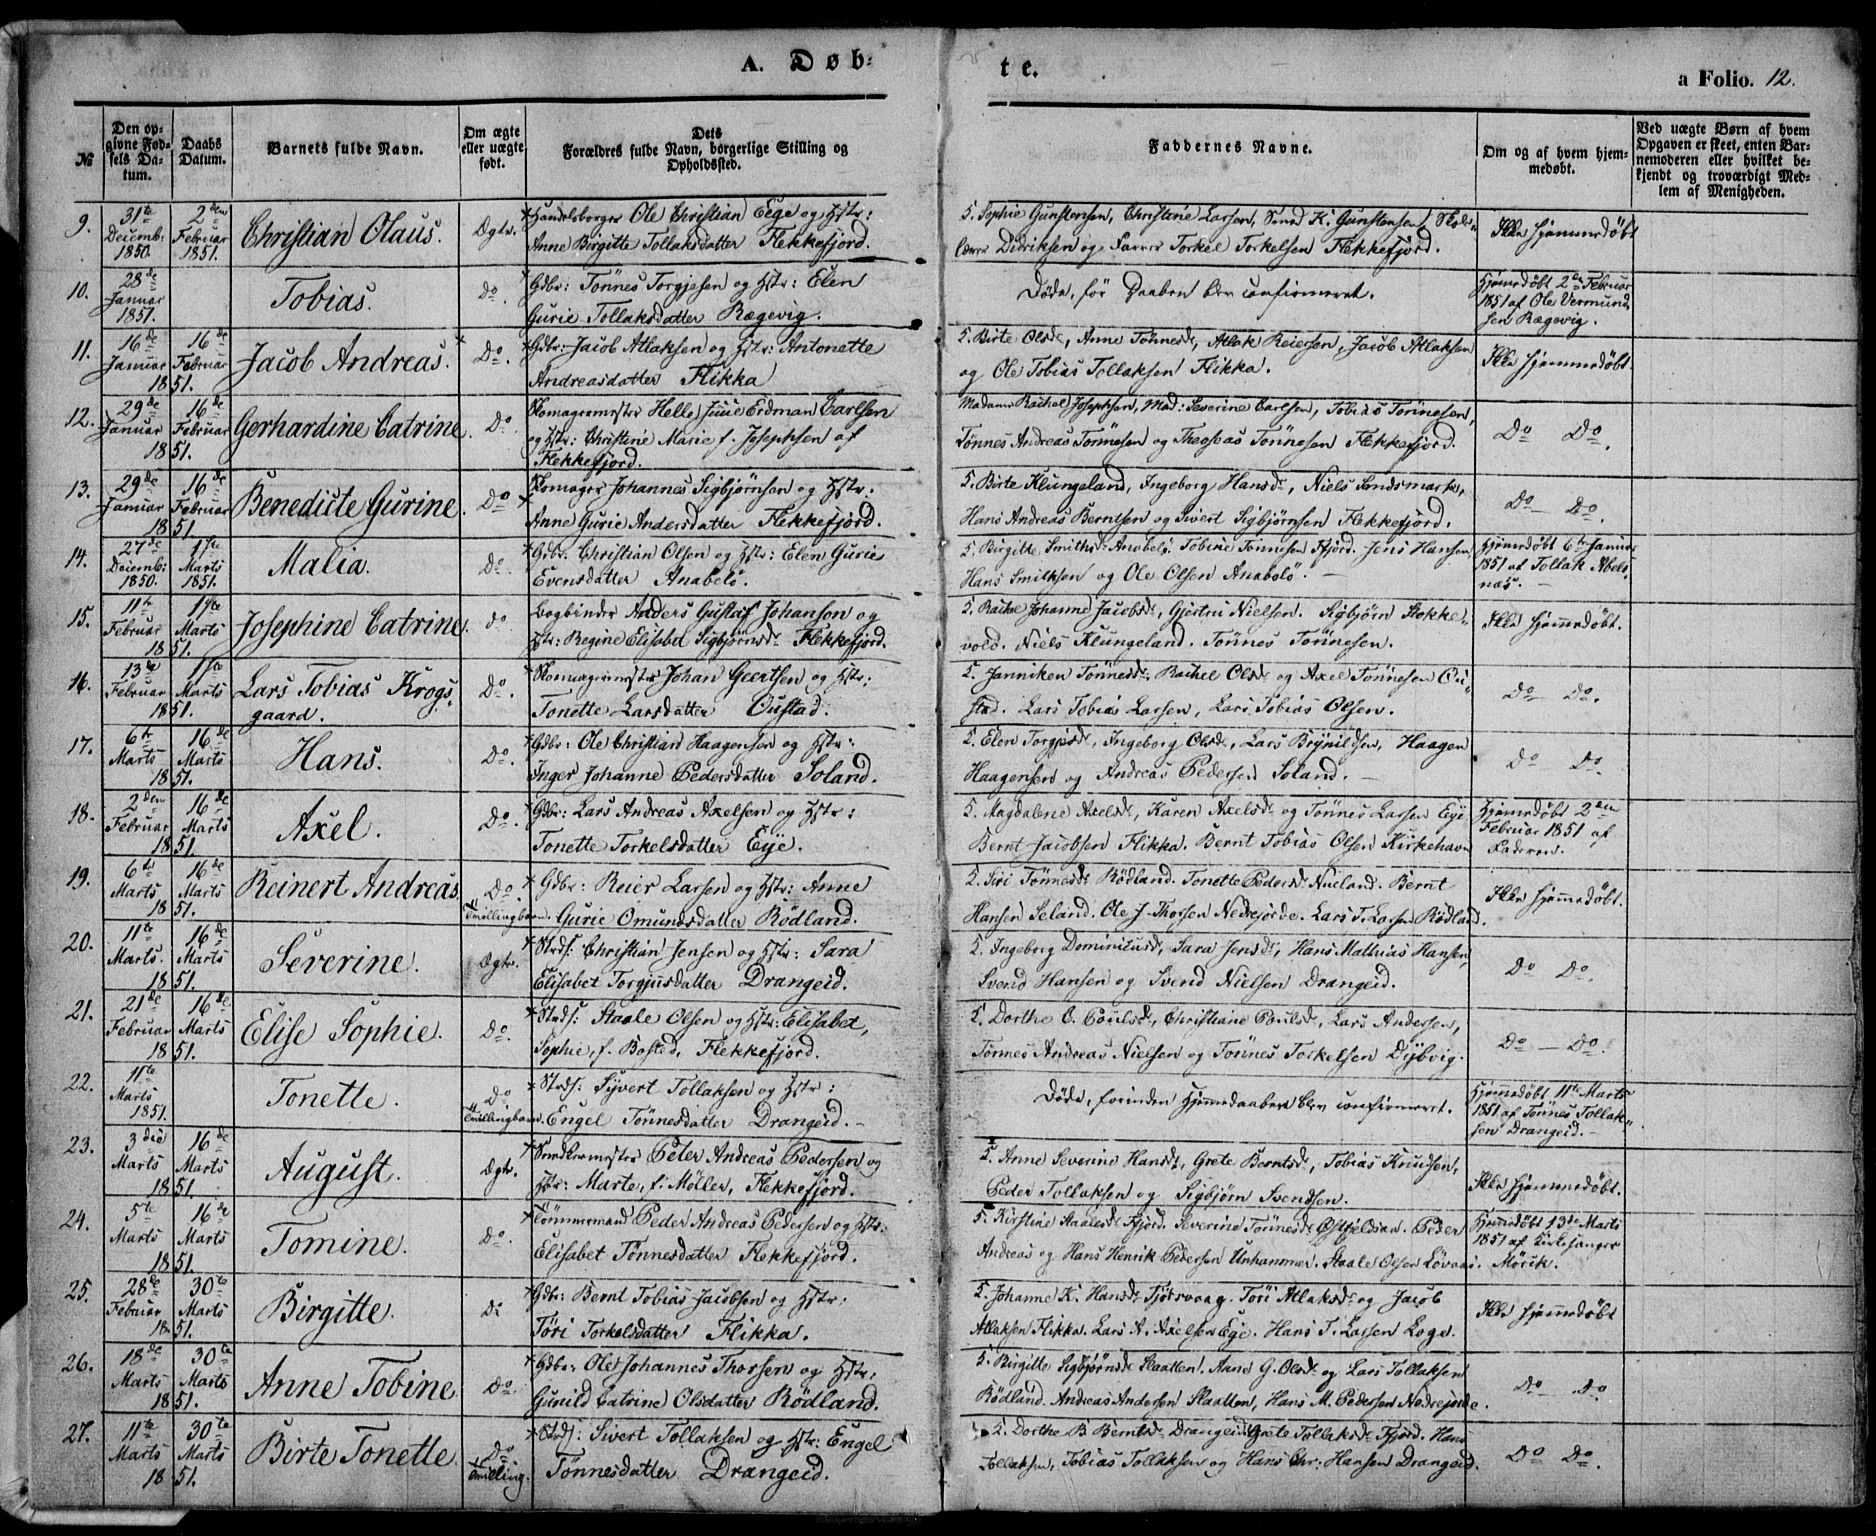 A. Døb-
te.
a Folio. 12.
№
Den opgivne Fødsels Datum.
Daabs Datum.
Barnets fulde Navn.
Om ægte eller uægte født.
Dets Forældres fulde Navn, borgerlige Stilling og Opholdssted.
Faddernes Navne.
Om og af hvem hjemmedøbt.
Ved uægte Børn af hvem Opgaven er skeet, enten Barnemoderen eller hvilket bekjendt og troværdigt Medlem af Menigheden.
9. 31te Decemb: 1850. 2den Februar 1851. Christian Olaus. Ægte. Handelsborger Ole Christian Eege og Hstr:
Anne Birgitte Tollaksdatter Flekkefjord.
5. Sophie Gunstensen, Christine Larsen, Svend K. Gunstensen, Skolelærer Didriksen og Farver Torkel Torkelsen Flekkefjord.
Ikke hjemmedøbt
10. 28de Januar 1851. Tobias. Do. Gdbr: Tönnes Torgjesen og Hstr: Elen
Gurie Tollaksdatter Rægevig.
Døde, før Daaben blev confirmeret.
Hjemmedøbt 2den Februar 1851 af Ole Vermundsen Rægevig.
11. 16de Januar 1851. 16de Februar Jacob Andreas. Do. Gdbr: Jacob Atlaksen og Hstr: Antonette
Andreasdatter Flikka
5. Birte Olsdr, Anne Tönnesdr, Atlak Reiersen, Jacob Atlaksen
og Ole Tobias Tollaksen Flikka.
Ikke hjemmedøbt.
12. 29de Januar 1851. 16de Februar Gerhardine Catrine. Do. Skomagermester Erdman Carlsen
og Hstr: Christine Marie f. Josephsen af
Flekkefjord.
Madame Rachel Josephsen, Mad: Severine Carlsen, Tobias Tönnesen,
Tönnes Andreas Tönnesen og Theoseas Tönnesen Flekkefjord.
Do Do.
13. 29de Januar 1851. 16de Februar Benedicte Gurine. Do Skomager Johannes Sigbjörnsen og Hstr:
Anne Gurie Andersdatter Flekkefjord.
5. Birte Klungeland, Ingeborg Hansdr, Niels Sandsmark,
Hans Andreas Berntsen og Sivert Sigbjörnsen Flekkefjord.
Do Do.
14. 27de Decemb: 1850. 1ste Marts 1851. Malia. Do. Gdbr: Christian Olsen og Hstr: Elen Gurie
Evensdatter Anabelö.
5. Birgitte Smithsdr Anabelö. Tobine Tönnesen Fjord. Jens Hansen
Hans Smithsen og Ole Olsen Anabelö.
Hjemmedøbt 6te Januar 1851 af Tollak Abelsnæs.
15. 11te Februar 1851. 1ste Marts Josephine Catrine. do. Bogbinder Anders Gustaf Johanson og
Hstr: Regine Elisabet Sigbjörnsdr Flekkefjord.
5. Rachel Johanne Jacobsdr, Gjertru Nielsen. Sigbjörn Stokkevold. Niels Klungeland. Tönnes Tönnesen.
Ikke hjemmedøbt.
16. 13de Februar 1851. 1ste Marts Lars Tobias Krogsgaard. Do. Skomagermester Johan Geertsen og Hstr:
Tonette Larsdatter Oustad.
5. Janniken Tönnesdr. Rachel Olsdr og Axel Tönnesen Oustad. Lars Tobias Larsen, Lars Tobias Olsen.
Do Do.
17. 6te Marts 1851. 16de Marts Hans. Do. Gdbr: Ole Christian Haagensen og Hstr:
Inger Johanne Pedersdatter Soland.
5. Elen Torgjesdr, Ingeborg Olsdr, Lars Brynildsen, Haagen
Haagensen og Andreas Pedersen Soland.
Do Do.
18. 2den Februar 1851. 16de Marts Axel. Do. Gdbr: Lars Andreas Axelsen og Hstr:
Tonette Torkelsdatter Eye.
5. Magdalene Axelsdr, Karen Axelsdr og Tönnes Larsen Eye
Bernt Jacobsen Flikka. Bernt Tobias Olsen Kirkehavn
Hjemmedøbt 2den Februar 1851 af Faderen.
19. 6te Marts 1851. 16de Marts Reinert Andreas. Do. Tvillingbarn. Gdbr: Reier Larsen og Hstr: Anne
Gurie Omundsdatter Rödland.
5. Siri Tönnesdr Rödland. Tonette Pedersdr Nueland. Bernt
Hansen Seland. Ole J. Thorsen Nedrejorde. Lars T. Larsen Rödland.
Ikke hjemmedøbt.
20. 11te Marts. 1851. 16de Marts Severine. Ægte. Strds: Christian Jensen og Hstr: Sara
Elisabet Torgjusdatter Drangeid.
5. Ingeborg Dominicusdr, Sara Jensdr, Hans Mathias Hansen,
Svend Hansen og Svend Nielsen Drangeid.
Do Do.
21. 21de Februar 1851. 16de Marts Elise Sophie. Do. Strds: Staale Olsen og Hstr: Elisabet,
Sophie, f. Bosted, Flekkefjord.
5. Dorthe C. Poulsdr, Christiane Poulsdr, Lars Andersen,
Tönnes Andreas Nielsen og Tönnes Torkelsen Dybvig.
Do Do.
22. 11te Marts 1851. Tonette. Do Tvillingbarn. Strds: Syvert Tollaksen og Hstr:
Engel Tönnesdatter Drangeid.
Døde, forinden Hjemmedaaben blev confirmeret.
Hjemmedøbt 11te Marts 1851 af Tönnes Tollaksen Drangeid.
23. 3die Marts 1851. 16de Marts August. Ægte. Snedkermester Peter Andreas Pedersen og
Hstr: Marte, f. Møller, Flekkefjord.
5. Anne Severine Hansdr, Grete Berntsdr, Tobias Knudsen,
Peder Tollaksen og Sigbjörn Svendsen.
Ikke hjemmedøbt.
24. 5te Marts 1851. 16de Marts Tomine. Do. Tömmermand Peder Andreas Pedersen og Hstr:
Elisabet Tönnesdatter Flekkefjord.
5. Kirstine Staalesdr Fjord. Severine Tönnesdr Östfjeldsaa. Peder
Andreas og Hans Henrik Pedersen Unhammer. Staale Olsen Lövaas.
Hjemmedøbt 13de Marts 1851 af Kirkesanger Mörik.
25. 28de Februar 1851. 30te Marts Birgitte. Do Gdbr: Bernt Tobias Jacobsen og Hstr:
Töri Torkelsdatter Flikka.
5. Johanne K. Hansdr, Tjörsvaag. Töri Atlaksdr og Jacob
Atlaksen Flikka. Lars A. Axelsen Eye. Hans T. Larsen Loge.
Ikke hjemmedøbt
26. 18de Marts 1851. 30te Marts Anne Tobine. Do. Gdbr: Ole Johannes Thorsen og Hstr:
Gunild Catrine Olsdatter Rödland.
5. Birgitte Sigbjörnsdr Slaatten. Anne G. Olsdr og Lars Tollaksen
Rödland. Andreas Andersen Slaatten, Hans M. Pedersen Nedrejorde.
Do Do
27. 11te Marts 1851. 30te Marts Birte Tonette. Do Tvilling. Strds: Sivert Tollaksen og Hstr: Engel
Tönnesdatter Drangeid.
5. Dorthe B. Berntsdr Drangeid. Grete Tollaksdr Fjord. Hans
Tollaksen, Tobias Tollaksen og Hans Chr: Hansen Drangeid.
Do Do.